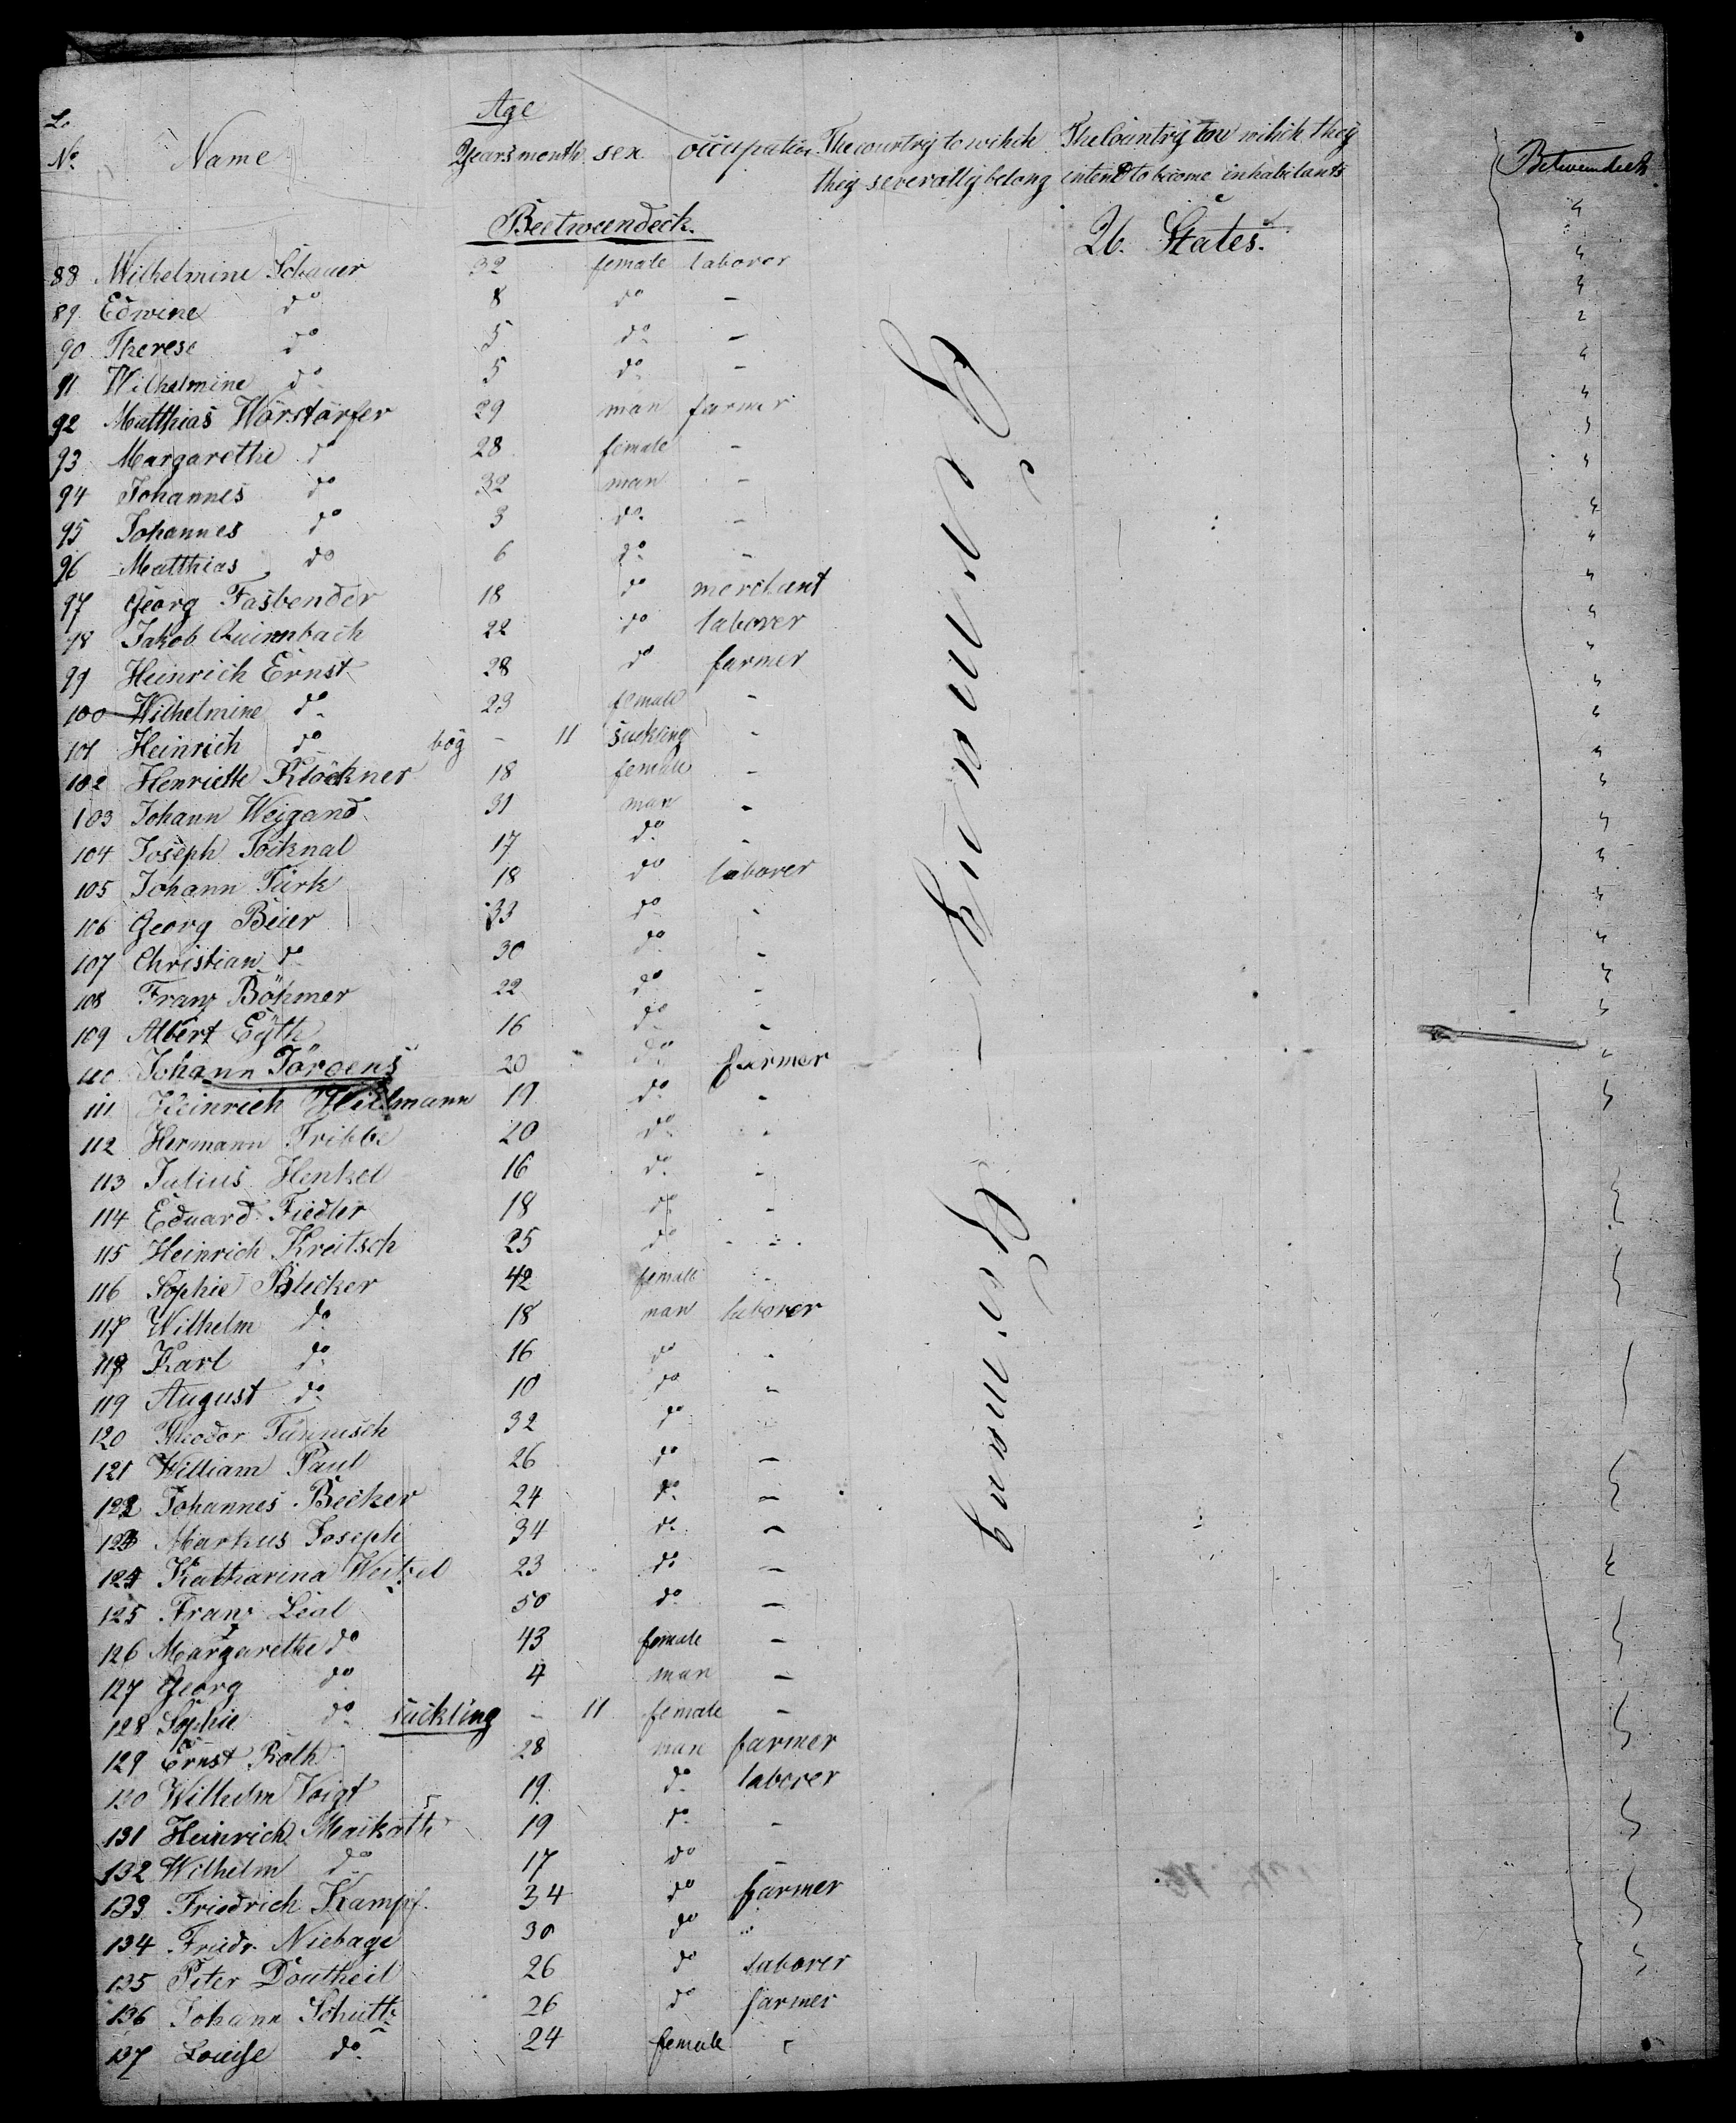 Age
No Name Years month sex occupation The country to wihch The Country tow wihch they
they severally belong intend to become inhabitants
Betweendeck
Beetweendeck.
U. States.
88 Wilhelmine Schauer 32 female laborer
89 Edwine do 8 do -
90 Therese do 5 do -
91 Wilhelmine do 5 do -
92 Matthias Wörstörfer 29 man farmer
93 Margarethe do 28 female -
94 Johannes do 32 man -
95 Johannes do 3 do -
96 Matthias do 6 do -
97 Georg Fasbender 18 do merchant
98 Jakob Quirnbach 22 do laborer
99 Heinrich Ernst 28 do farmer
100 Wilhelmine do 23 female -
101 Heinrich do bog - 11 suckling -
102 Henriette Klöckner 18 female -
103 Johann Weigand 31 man -
104 Joseph 17 do -
105 Johann Türk 18 do laborer
106 Georg Beier 33 do -
107 Christian do 30 do -
108 Franz Böhmer 22 do -
109 Albert Eyth 16 do -
110 Johann 20 do farmer
111 Heinrich 19 do -
112 Hermann Fribbe 20 do -
113 Julius Henkel 16 do -
114 Eduard Fiedler 18 do -
115 Heinrich Kreitsch 25 do -
116 Sophie Blecker 42 female -
117 Wilhelm do 18 man laborer
118 Karl do 16 do -
119 August do 10 do -
120 Theodor 32 do
121 William Paul 26 do -
122 Johannes Becker 24 do -
123 Markus Joseph 34 do -
124 Katharina Weitzel 23 do -
125 Franz Leal 50 do -
126 Margarethe do 43 female -
127 Georg do 4 man -
128 Sophie do suckling - 11 female -
129 Ernst Roth 28 man farmer
130 Wilhelm Voigt 19 do laborer
131 Heinrich Maikoth 19 do -
132 Wilhelm do 17 do -
133 Friedrich Kampf. 34 do farmer
134 Friedr. Niebage 30 do "
135 Peter Doutheil 26 do laborer
136 Johann Schutt 26 do farmer
137 Louise do 24 female
Germany
Germany